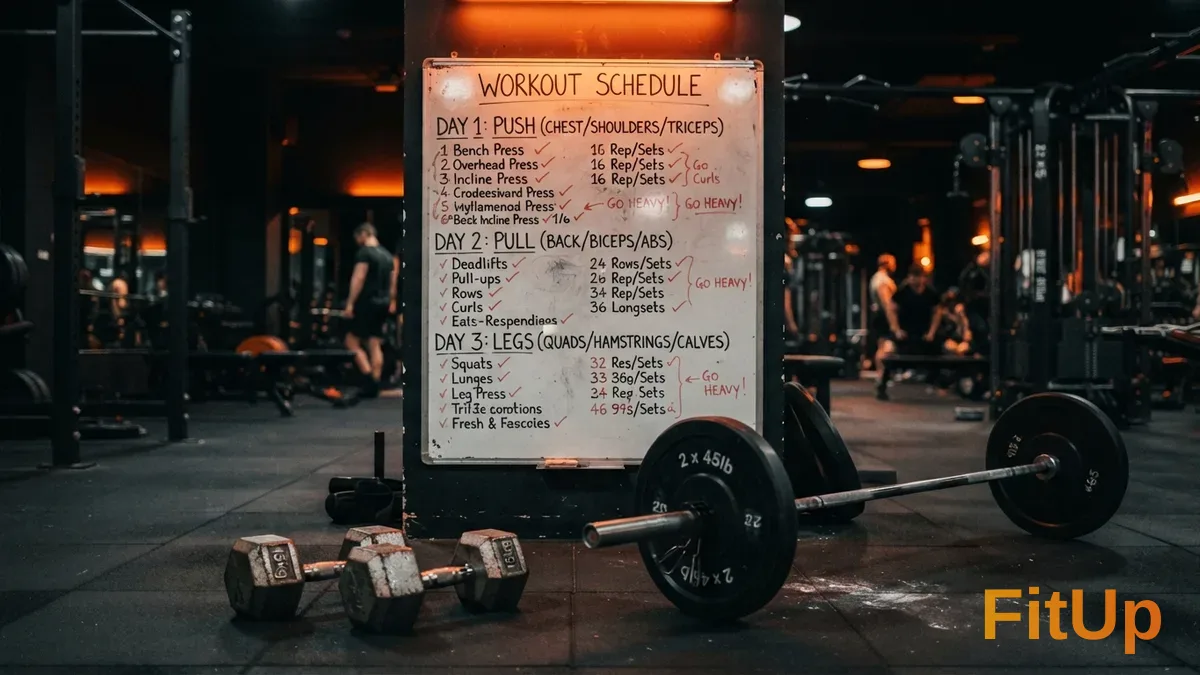 WORKOUT SCHEDULE
DAY 1: PUSH (CHEST/SHOULDERS/TRICEPS)
1 Bench Press ✓ 16 Rep/Sets ✓
2 Overhead Press ✓ 16 Rep/Sets ✓ Go
3 Incline Press ✓ 16 Rep/Sets ✓ Curls
4 Crodeesivard Press ✓
5 Press ✓ ← GO HEAVY! GO HEAVY!
Beck Incline Press ✓ 1/6 ✓
DAY 2: PULL (BACK/BICEPS/ABS)
✓ Deadlifts ✓ 24 Rows/Sets ✓
✓ Pull-ups ✓ 26 Rep/Sets ✓ GO HEAVY!
✓ Rows ✓ 34 Rep/Sets
✓ Curls ✓ 36 Longsets ✓
✓ Eats-Respendines ✓
DAY 3: LEGS (QUADS/HAMSTRINGS/CALVES)
✓ Squats ✓ 32 Res/Sets ✓
✓ Lunges ✓ 33 36g/Sets ← GO
✓ Leg Press ✓ 24 Rep Sets HEAVY!
✓ 46 99s/Sets
✓ Fresh & Fascoies ✓
2 x 45lb
22
2 x 46lb
15kg
FitUp